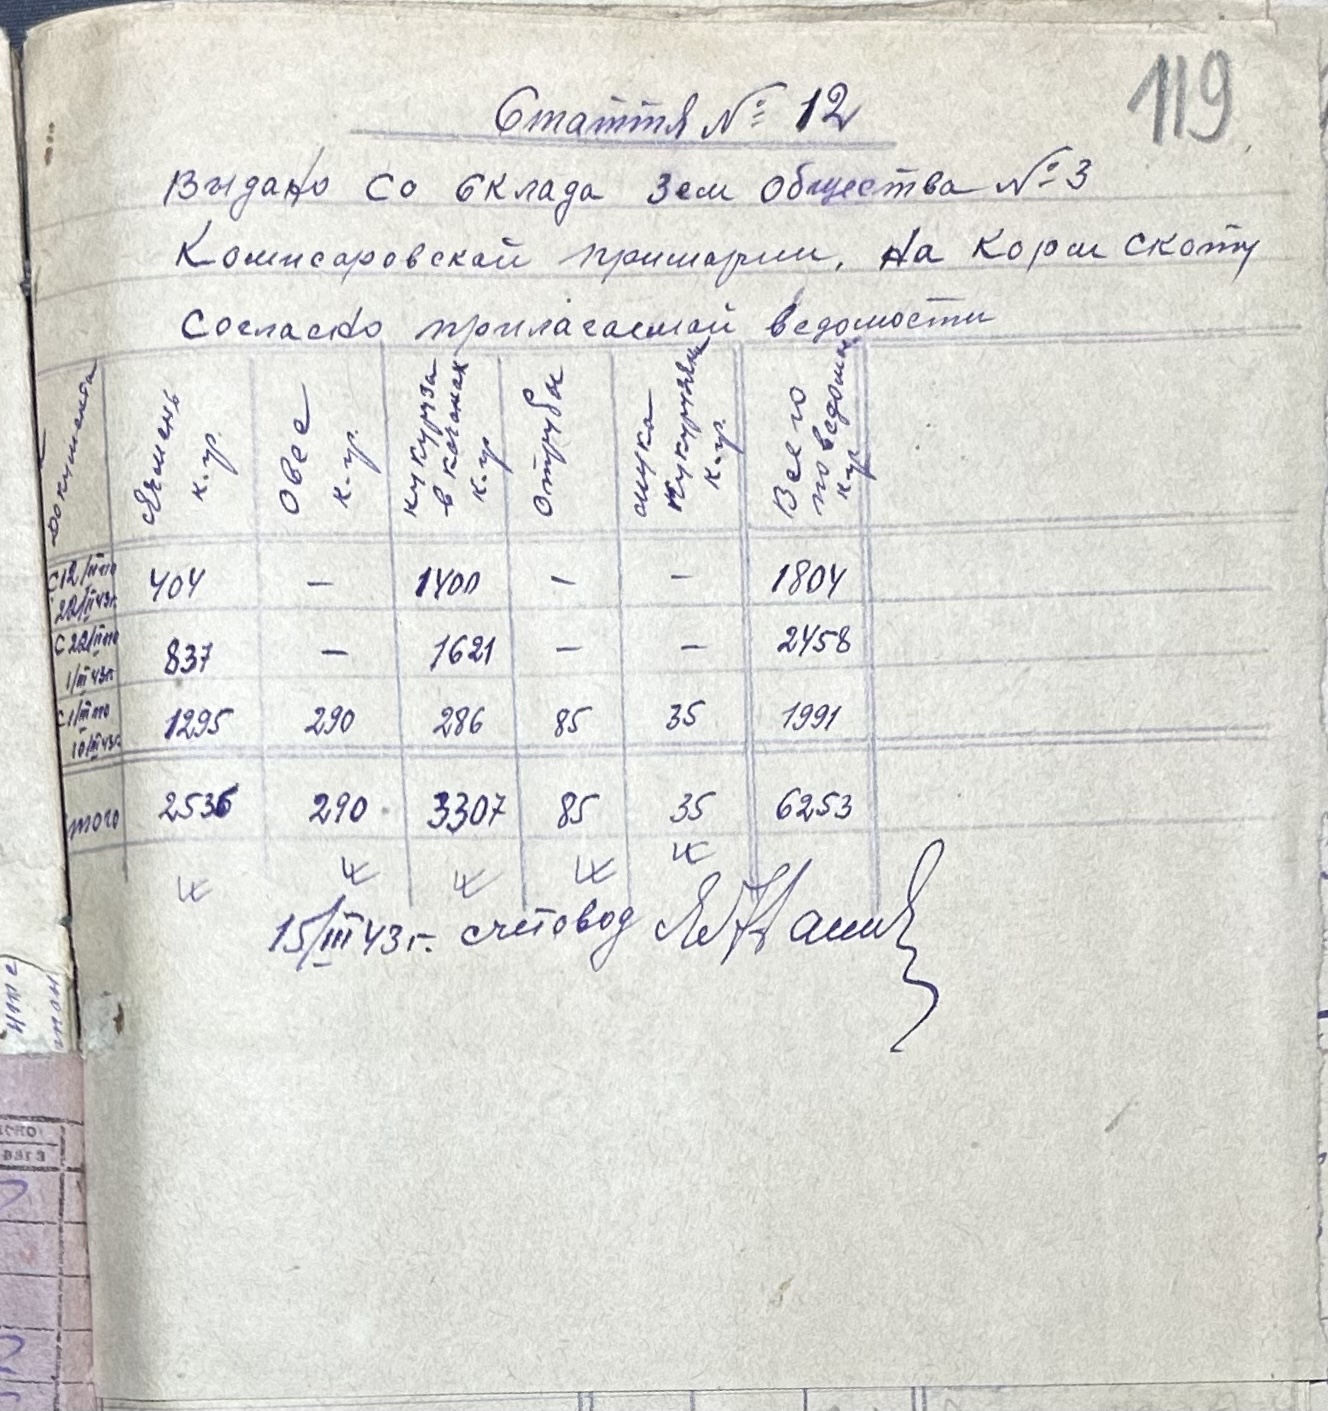 119
Стаття № 12
Выдано со Склада Зем Общества № 3
Комисаровской примарии, на корм скоту
Согласно прилагаемой ведомости
Документа | Ячмень к.гр. | Овес к.гр. | Кукуруза в качанах к.гр. | Отрубы | мука кукурузн к.гр. | Всего по ведом. кгр
С 12/II по 22/II 43г. | 404 | — | 1400 | — | — | 1804
С 22/II по 1/III 43г. | 837 | — | 1621 | — | — | 2458
С 1/III по 10/III 43г. | 1295 | 290 | 286 | 85 | 35 | 1991
того | 2536 | 290 | 3307 | 85 | 35 | 6253
15/III 43 г. счетовод